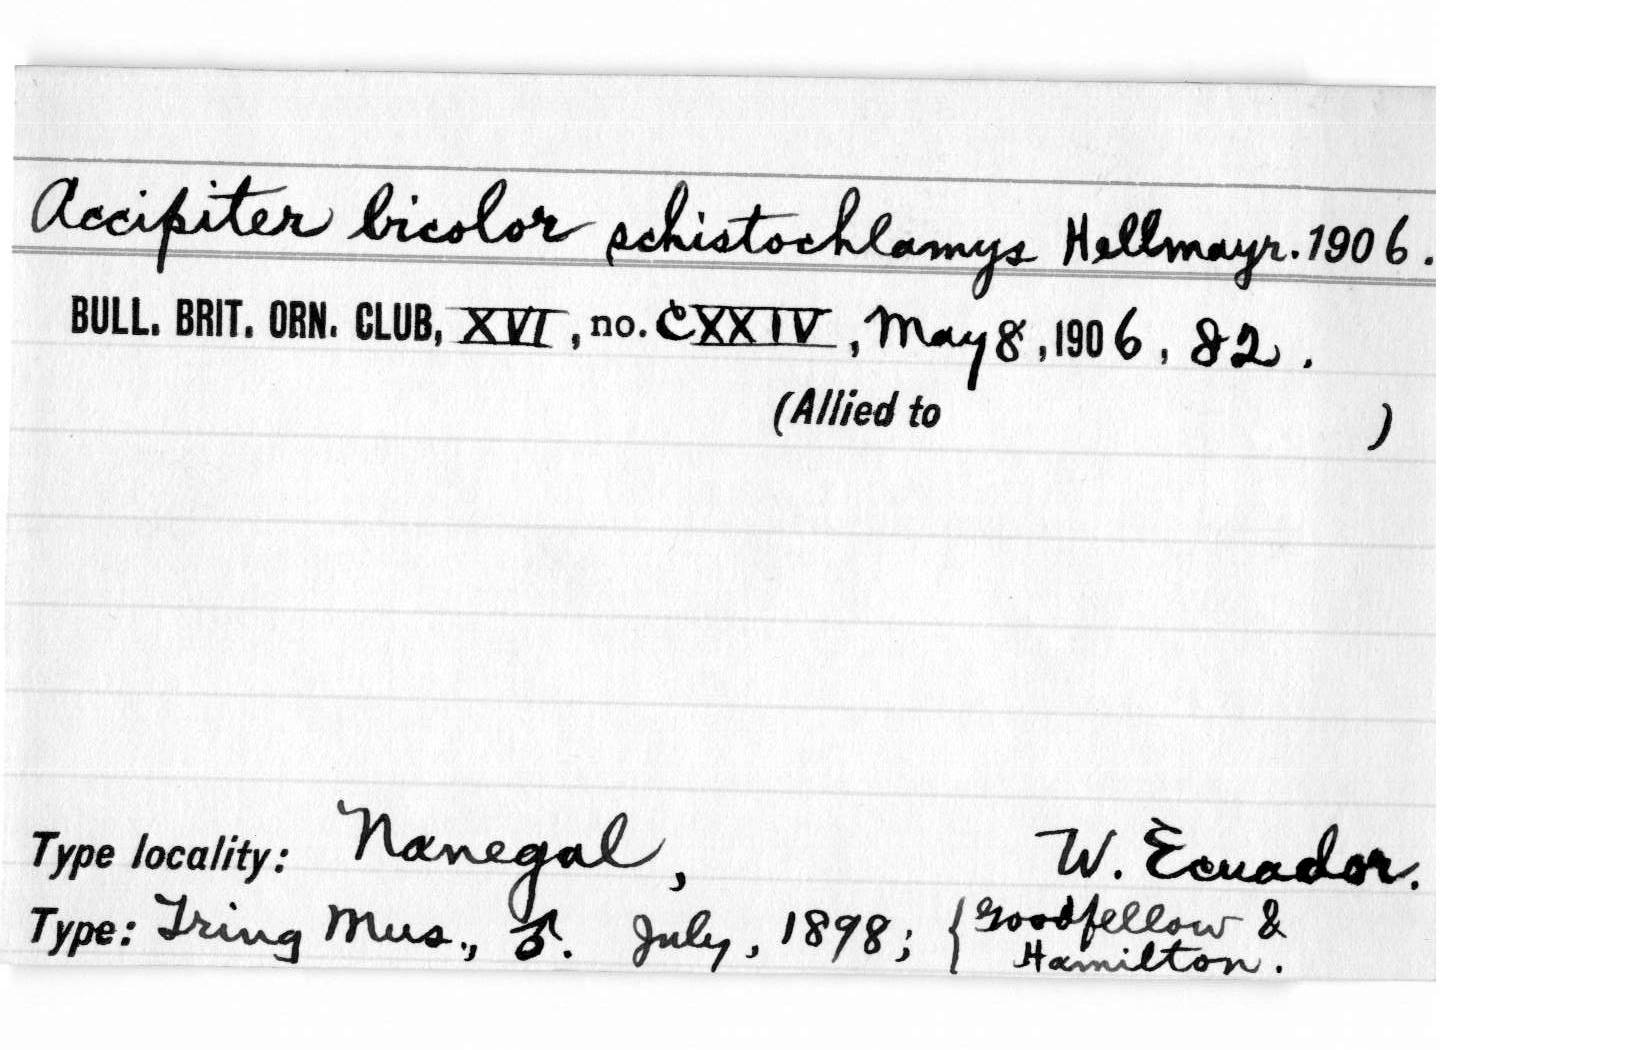 Accipiter bicolor schistochlamys Hellmayr. 1906.
BULL. BRIT. ORN. CLUB, XVI, no. CXXIV, May 8, 1906, 82.
(Allied to )
Type locality: Nanegal, W. Ecuador.
Type: Tring Mus., ♂. July, 1898; { Goodfellow &
Hamilton.